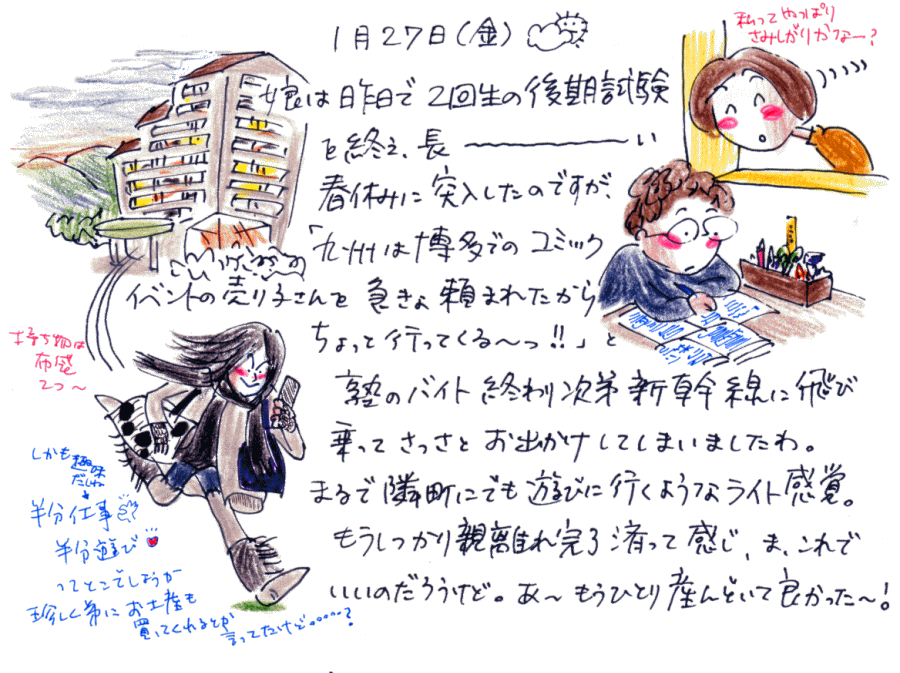 1月27日(金)
私ってやっぱり
さみしがりかなー?
娘は昨日で2回生の後期試験
を終え、長――――い
春休みに突入したのですが、
「九州は博多でのコミック
イベントの売り子さんを急きょ頼まれたから
ちょっと行ってくる〜っ!!」と
塾のバイト終わり次第新幹線に飛び
乗ってさっさとお出かけしてしまいましたわ。
まるで隣町にでも遊びに行くようなライト感覚。
もうしっかり親離れ完了済って感じ、ま、これで
いいのだろうけど。あ〜もうひとり産んどいて良かった〜!
持ち物は
布袋
2つ〜
しかも趣味
だしね
半分仕事
半分遊び
ってとこでしょうか
珍しく弟にお土産も
買ってくれるとか
言ってたけど……?